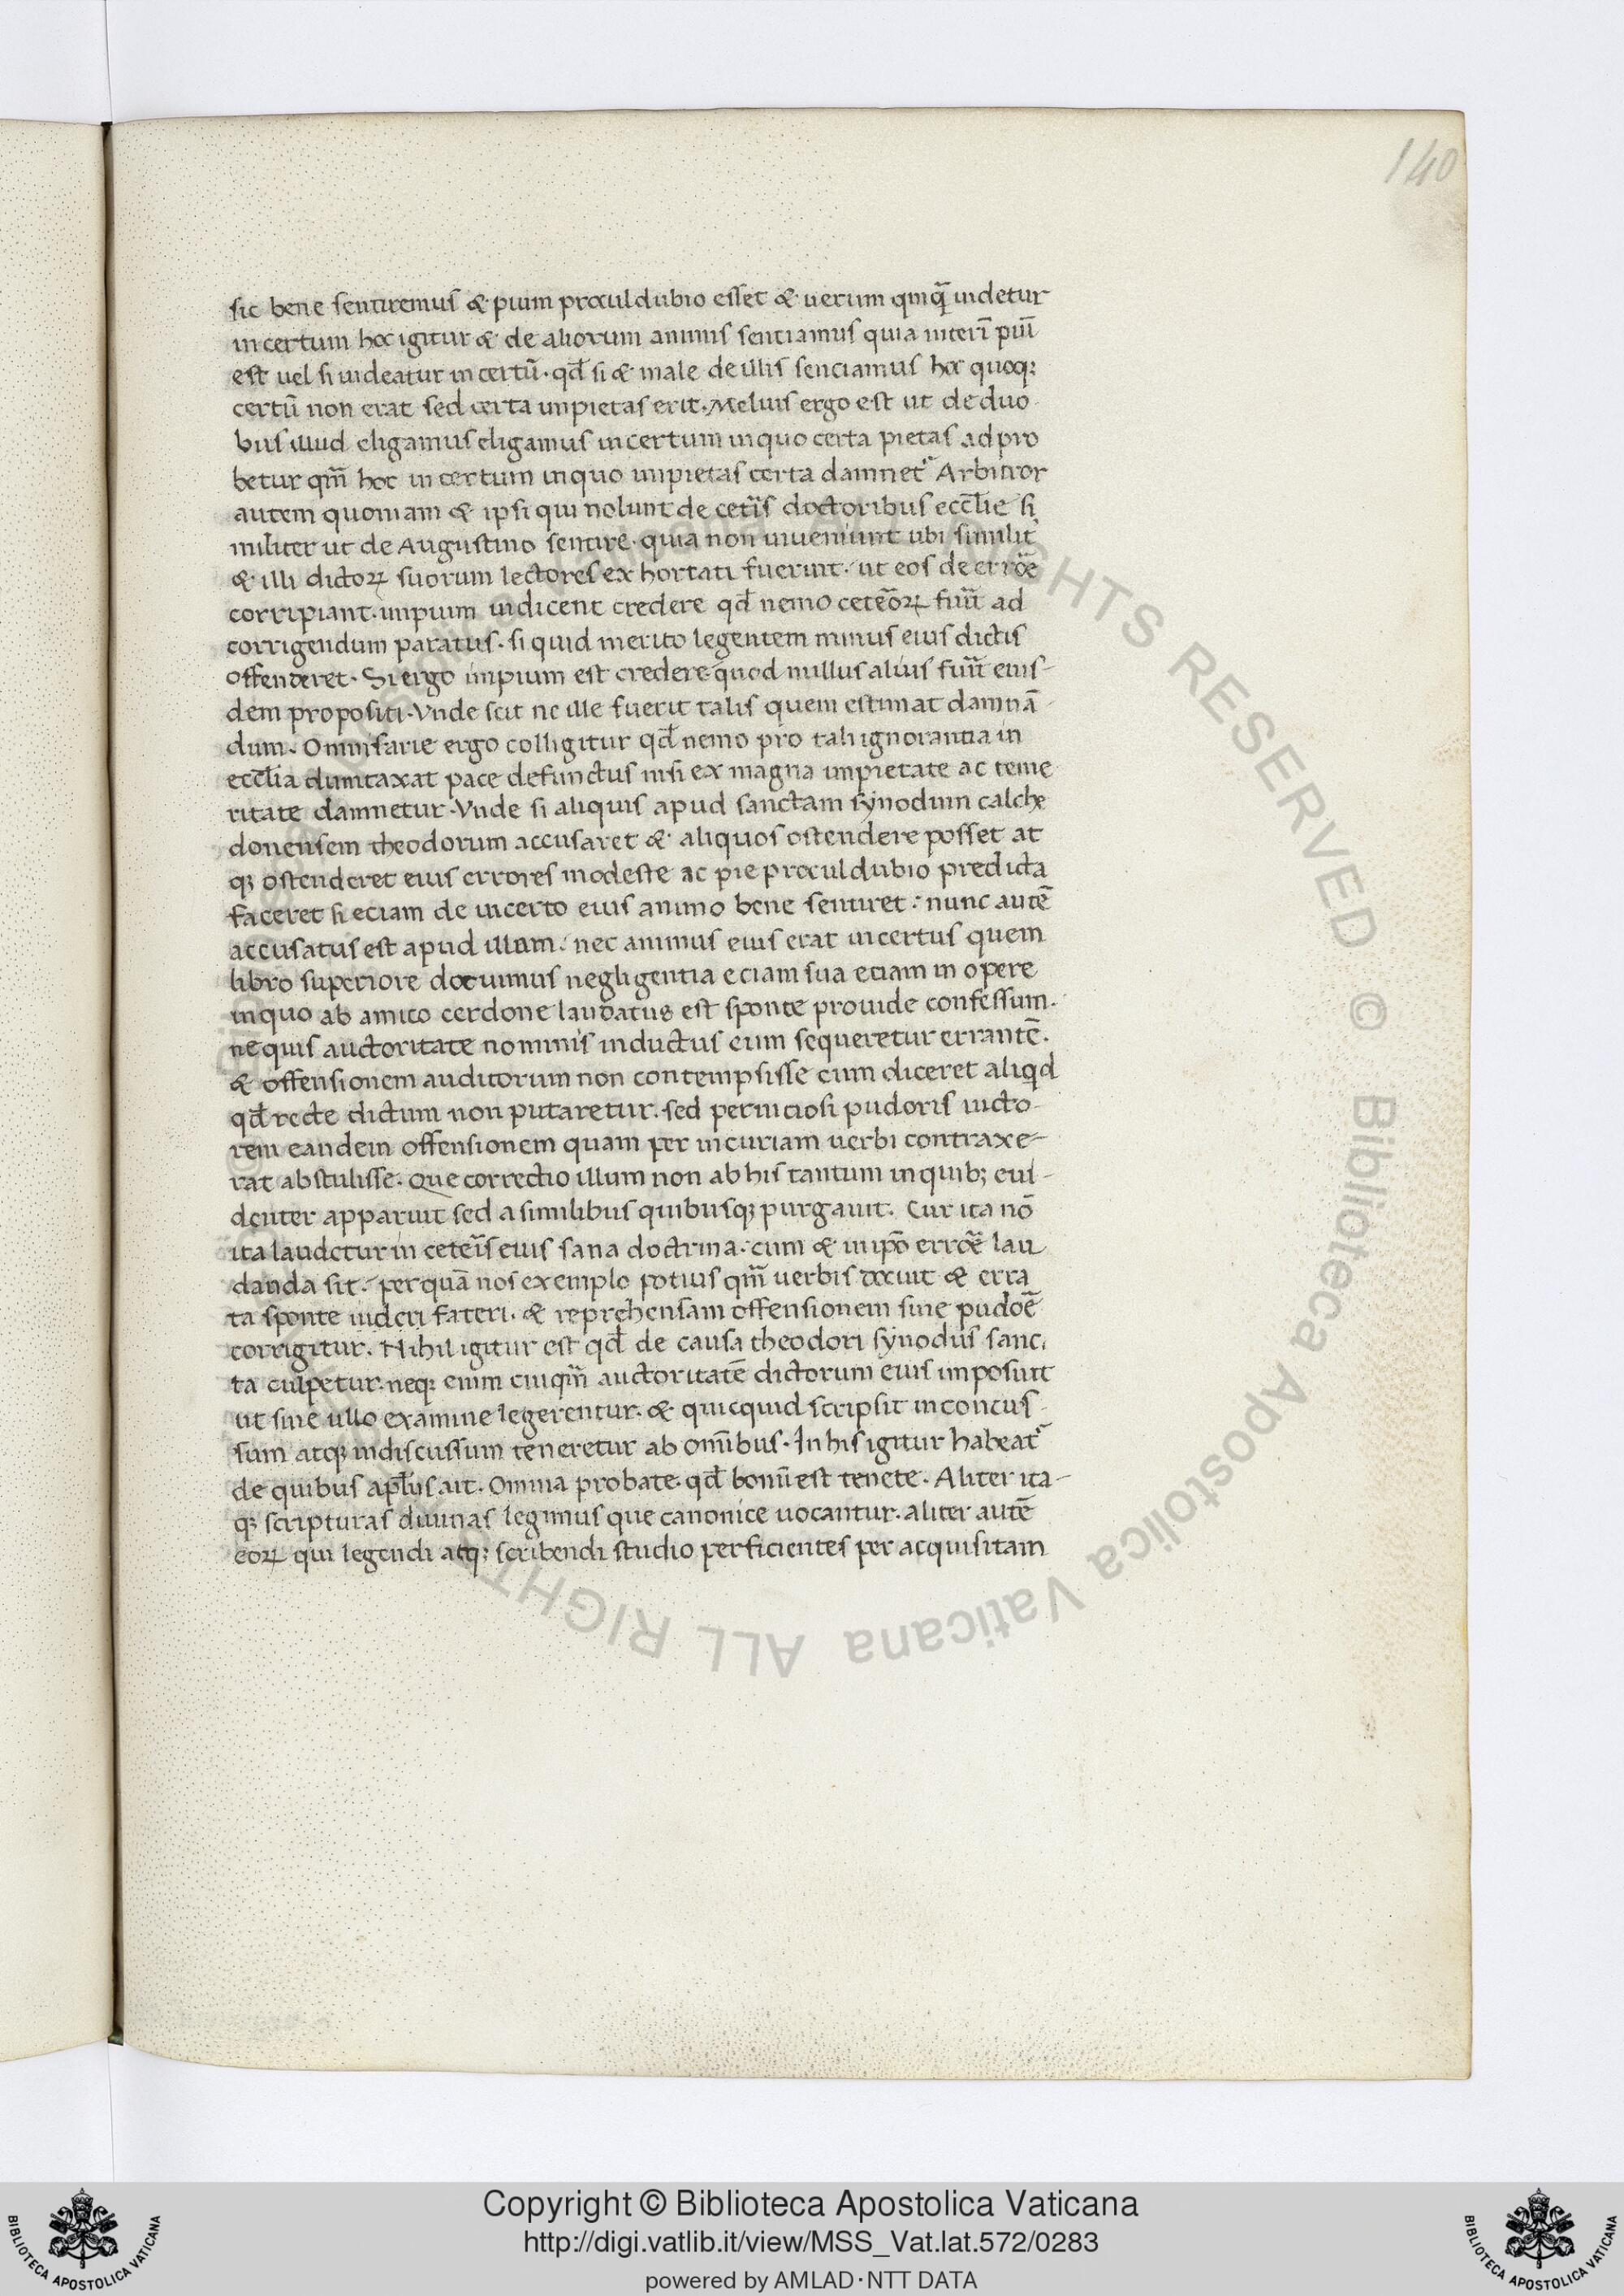 140
sic bene sentiremus & pium proculdubio esset & uerum qmq̃ uidetur
incertum hoc igitur & de aliorum animis sentiamus quia interĩ piũ
est uel si uideatur incertũ · qđ si & male de illis senciamus hoc quoq;
certũ non erat sed certa impietas erit. Melius ergo est ut de duo
bus illud eligamus eligamus incertum inquo certa pietas adpro
betur qm̃ hoc incertum inquo impietas certa damnet᷑ Arbitror
autem quoniam & ipsi qui nolunt de cetĩs doctoribus eccl̃ie si
militer ut de Augustino sentire · quia non inueniunt ubi similit᷑
& illi dictoꝝ suorum lectores exhortati fuerint · ut eos de erroẽ
corripiant · impium iudicent credere qđ nemo ceteõꝝ fuĩt ad
corrigendum paratus · si quid merito legentem minus eius dictis
offenderet · Si ergo impium est credere quod nullus alius fuĩt eius-
dem propositi · Vnde scit ne ille fuerit talis quem estimat damnã-
dum · Omnifarie ergo colligitur qđ nemo pro tali ignorantia in
eccl̃ia dumtaxat pace defunctus nisi ex magna impietate ac teme
ritate damnetur · Vnde si aliquis apud sanctam synodum calche
donensem theodorum accusaret & aliquos ostendere posset at
q; ostenderet eius errores modeste ac pie proculdubio predicta
faceret si eciam de incerto eius animo bene sentiret : nunc autẽ
accusatus est apud illam · nec animus eius erat incertus quem
libro superiore docuimus negligentia eciam sua eciam in opere
inquo ab amico cerdone laudatus est sponte prouide confessum ·
nequis auctoritate nominis inductus eum sequeretur errantẽ ·
& offensionem auditorum non contempsisse cum diceret aliqd
qđ recte dictum non putaretur · sed perniciosi pudoris uicto-
rem eandem offensionem quam per incuriam uerbi contraxe-
rat abstulisse · Que correctio illum non ab his tantum inquib; eui-
denter apparuit sed a similibus quibusq; purgauit · Cur ita nõ
ita laudetur in ceteĩs eius sana doctrina : cum & in ip̃o erroẽ lau
danda sit · per quã nos exemplo potius qm̃ uerbis docuit & erra
ta sponte uideri fateri · & reprehensam offensionem sine pudoẽ
corrigitur · Nihil igitur est qđ de causa theodori synodus sanc
ta culpetur · neq; enim cuiqm̃ auctoritatẽ dictorum eius imposuit
ut sine ullo examine legerentur · & quicquid scripsit inconcus-
sum atq; indiscussum teneretur ab omĩbus · In his igitur habeat᷑
de quibus apl̃us ait · Omnia probate · qđ bonũ est tenete · Aliter ita-
q; scripturas diuinas legimus que canonice uocantur · aliter autẽ
eoꝝ qui legendi atq; scribendi studio perficientes per acquisitam
© Biblioteca Apostolica Vaticana ALL RIGHTS RESERVED © Biblioteca Apostolica Vaticana ALL RIGHTS RESERVED
Copyright © Biblioteca Apostolica Vaticana
http://digi.vatlib.it/view/MSS_Vat.lat.572/0283
powered by AMLAD·NTT DATA
BIBLIOTECA APOSTOLICA VATICANA
BIBLIOTECA APOSTOLICA VATICANA